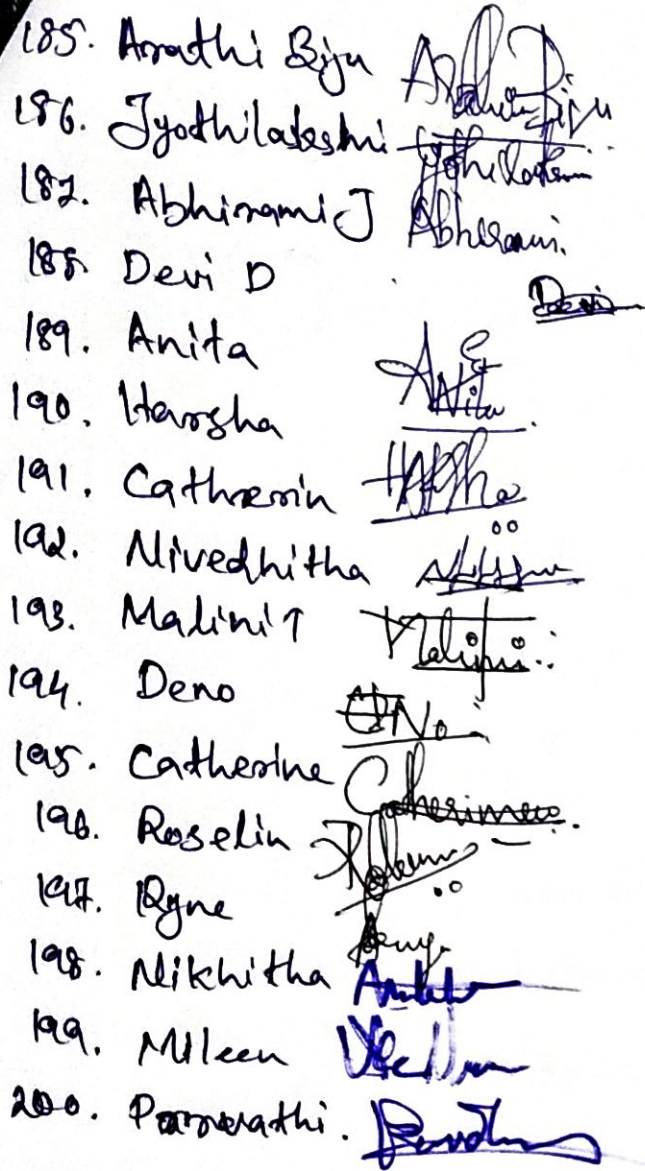 185. Arathi Biju
186. Jyothilakshmi
187. Abhirami J Abhirami.
188. Devi D Devi
189. Anita Anita
190. Harsha Harsha
191. Catherin
192. Nivedhitha
193. Malini T Malini
194. Deno DeNo
195. Catherine Catherine
196. Roselin
197. Ryne
198. Nikhitha
199. Mileen
200. Parvathi.